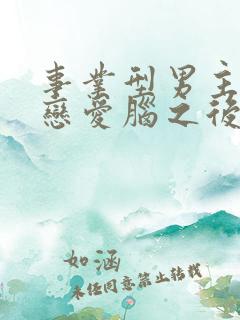 事業型男主
戀愛腦之後
如涵
未经同意禁止转载